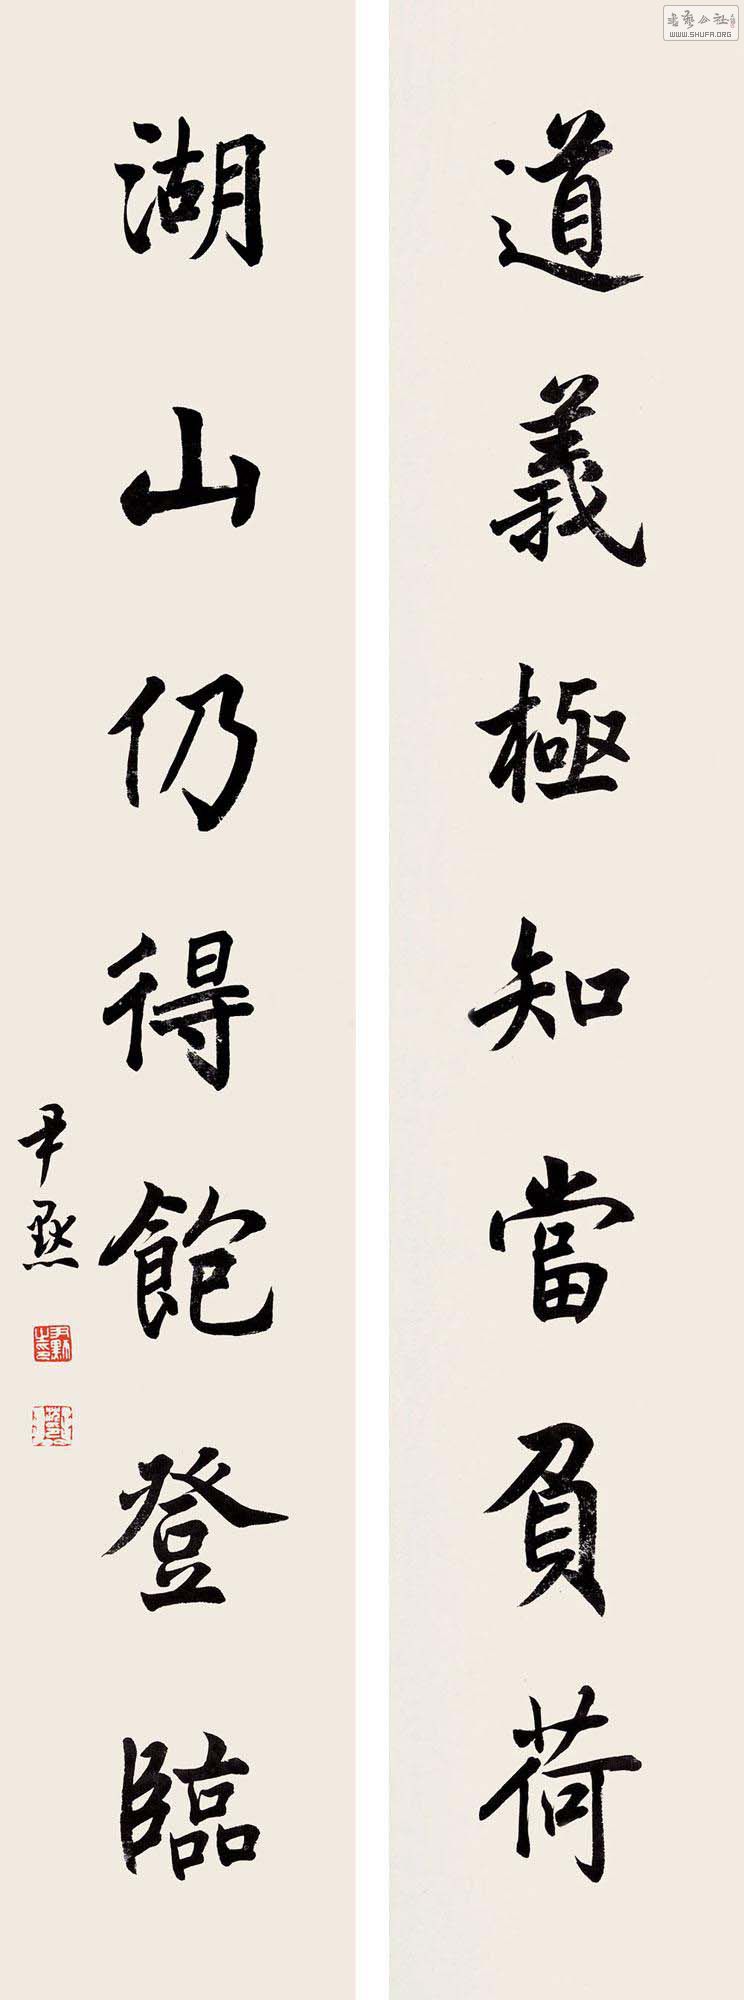 道義極知當負荷
湖山仍得飽登臨
尹默
書藝公社
WWW.SHUFA.ORG